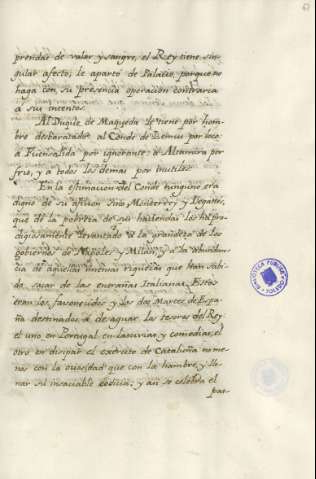 prendar de valor y sangre, el Rey tiene sin-
gular afecto; le apartó de Palacio, porque no
haga con su presencia operacion contraria
a su intento.
Al Duque de Maqueda le tiene por hom-
bre desbaratado al Conde de Lemus por loco
a Fuensalida por ignorante à Altamira por
frio, y a todos los demas por inutiles
En la estimacion del Conde ninguno era
digno de su aficion sino Monterrey y Leganes,
que de la pobreza de sus haciendas los ha pro-
digiosamente levantado a la grandeza de los
gobiernos de Napoles y Milan y a la abundan-
cia de aquellas inmensas riquezas que han sabi-
do sacar de las entrañas Italianas. Estos
eran los favorecidos y los dos Martes de Espa-
ña destinados à desaguar los tesoros del Rey:
el uno en Portugal en lascivias y comedias, el
otro en disipar el exército de Cataluña no me-
nos con la ociosidad que con la hambre, y lle-
nar su insaciable codicia; y aun se celebra el
par-
BIBLIOTECA